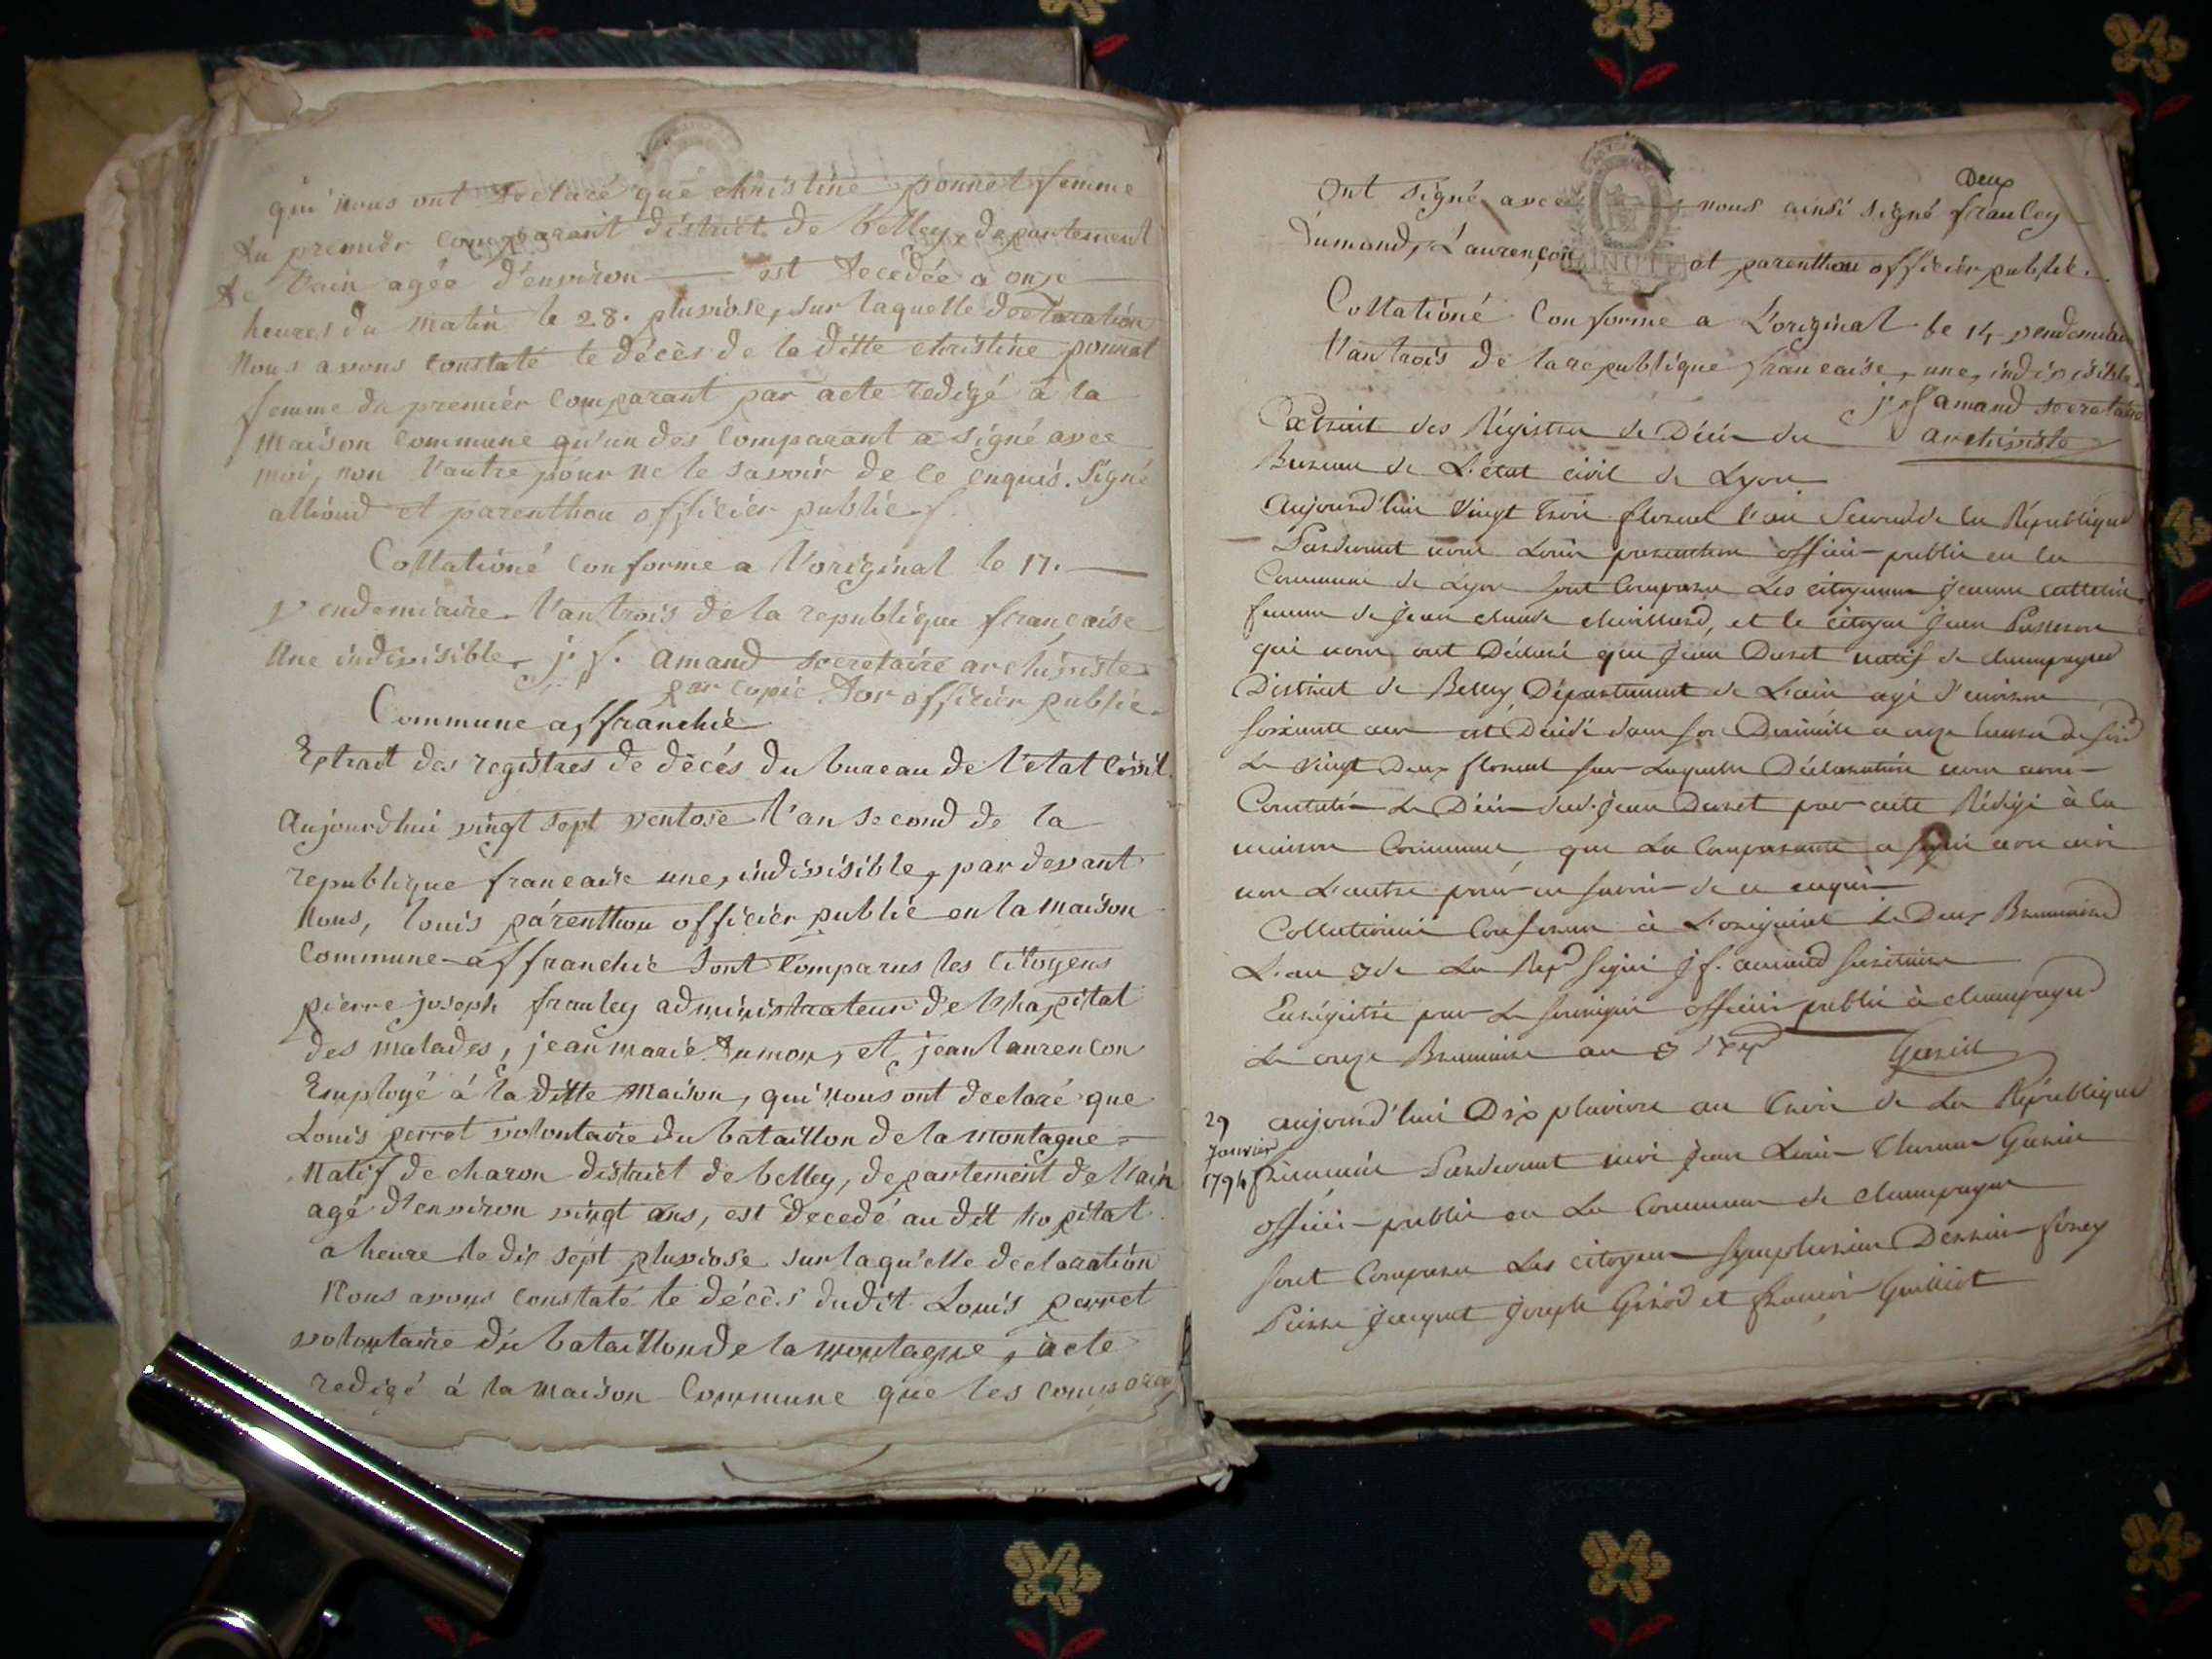 qui nous ont declaré que christine ponnet femme
du premier comparant district de belley, departement
de l'ain agée d'environ — est decédée a onze
heures du matin le 28. pluviose, sur laquelle declaration
Nous avons constaté le décès de la ditte christine ponnet
femme du premier comparant par acte redigé à la
maison commune qu'un des comparant a signé avec
moi, non l'autre pour ne le savoir de ce enquis. Signé
alliond et parenthou officier public.
Collationé conforme a l'original le 17.
vendemiaire l'an trois de la republique française
Une indivisible, j. f. amand secretaire archiviste
par copie officier public.
Commune affranchie
Extrait des registres de décés du bureau de l'etat Civil.
Aujourdhui vingt sept ventose l'an second de la
republique française une, indivisible, par devant
Nous, louis parenthou officier public en la maison
Commune-affranchie sont Comparus les Citoyens
pierre joseph frauley administrateur de l'hapital
des malades, jean marie dumon, et jean laurencon
Employé à la ditte Maison, qui nous ont declaré que
Louis perret volontaire du bataillon de la montagne
Natif de charon district de belley, departement de l'ain
agé d'environ vingt ans, est decedé au dit hopital
a heure le dix sept pluviose sur laqu'elle declaration
Nous avons constaté le décès dudit Louis perret
volontaire du bataillon de la montagne, acte
redigé à la maison Commune que les compara
Deux
Ont signé avec nous ainsi signé frauley
Dumond, Laurençon et parenthou officier public.
Collationé Conforme a L'original le 14 vendemiaire
l'an trois de la republique française, une, indivisible.
j. f amand secretaire
archiviste
Extrait des Régistres de Décès du
Bureau de L'état civil de Lyon
Aujourd'hui Vingt trois floreal l'an Second de la République
Pardevant nous Louis parenthou officier public en la
Commune de Lyon sont Comparus Les citoyenne jeanne
femme de jean claude, et le citoyen jean
qui nous ont Déclaré que jean Duret natif de champagne
District de Belley Département de L'ain agé d'environ
soixante ans est Décédé dans son Domicile a onze heures du soir
Le vingt Deux floreal sur Laquelle Déclaration nous avons
Constaté Le Décès dud. jean Duret par acte Rédigé à la
maison Commune, que La Comparante a signé avec moi
non L'autre pour ne savoir de ce enquis
Collationné Conforme à L'original le Deux Brumaire
L'an 3 de La Rep signé j f. amand secretaire
Enrégistré par Le soussigné officier public à champagne
Le onze Brumaire an 3
29
janvier
1794
aujourd'hui Dix pluviose an trois de La République
Pardevant moi jean Louis Guerin
officier public en La Commune de champagne
sont Comparus Les citoyens Symphorien
Pierre jacquet joseph Girod et françois